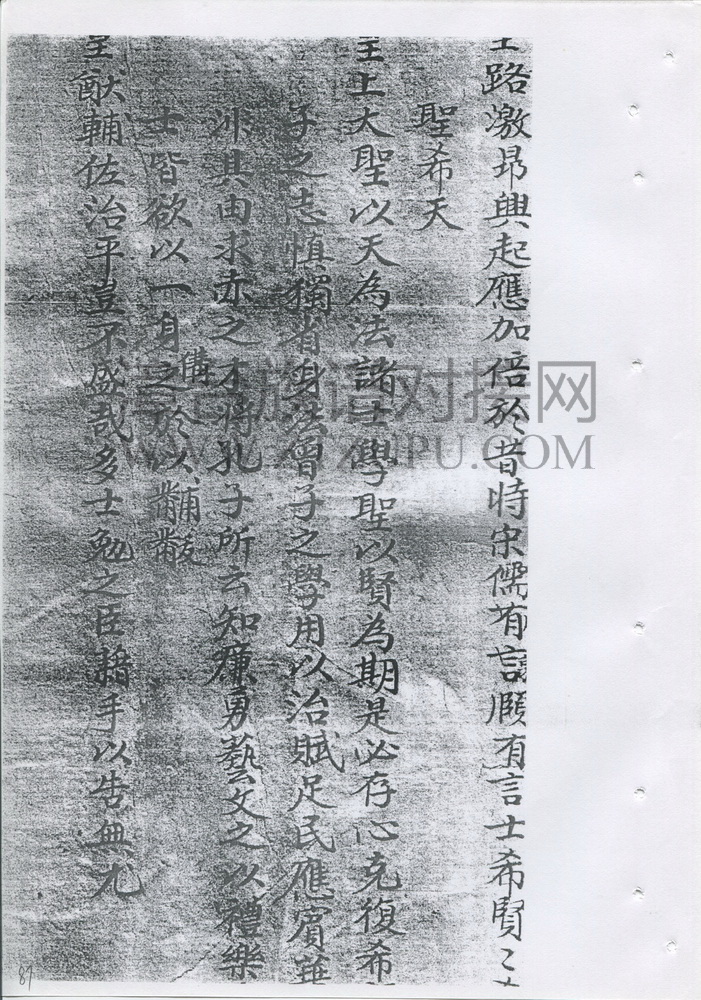 路激昂興起應加倍於昔時宋儒有言願有言士希賢〻
聖希天
主上大聖以天為法諸士學聖以賢為期是必存心克復希
子之志慎獨省身法曾子之學用以治賦足民應賓
其由求赤之才得孔子所云知廉勇藝文之以禮樂
士皆欲以一身之於以黼黻
猷輔佐治平豈不盛哉多士勉之臣藉手以告無尤
構
对接网
PU.COM
87